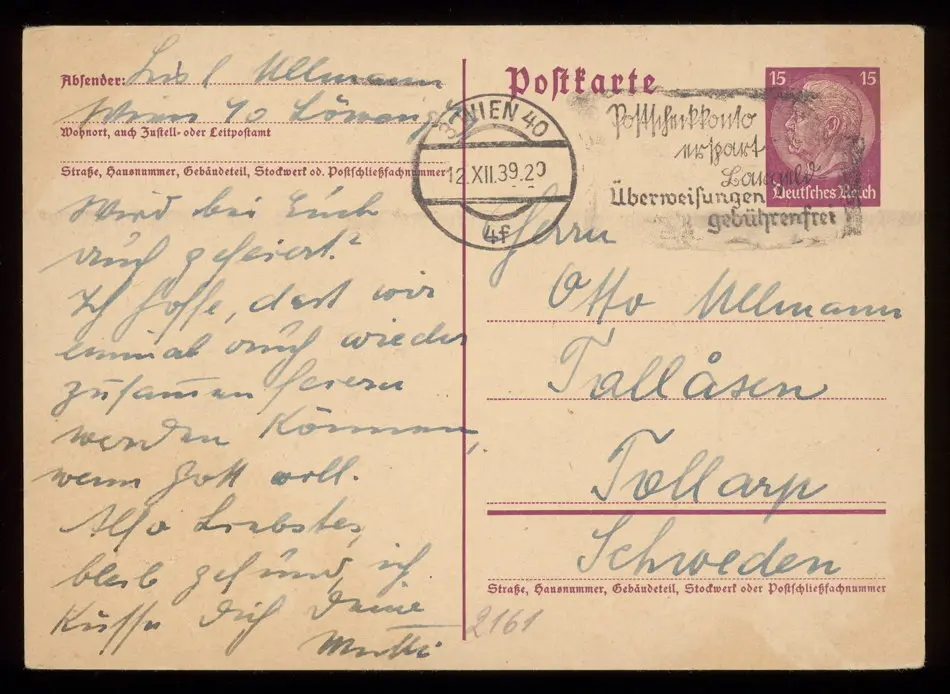 Absender: Lisl Ullmann
Wien 40
Wohnort, auch Zustell- oder Leitpostamt
Straße, Hausnummer, Gebäudeteil, Stockwerk od. Postschließfachnummer
Wird bei Euch
auch gefeiert?
Ich hoffe, dass wir
einmal auch wieder
zusammen feiern
werden können,
wenn Gott will.
Also Liebster,
bleib gesund, ich
küsse Dich Deine
Mutti
Postkarte
WIEN 40
12.XII.39.20
4f
Postscheckkonto
erspart
Überweisungen
gebührenfrei
15 15
Deutsches Reich
Herrn
Otto Ullmann
Tallåsen
Tollarp
Schweden
Straße, Hausnummer, Gebäudeteil, Stockwerk oder Postschließfachnummer
2161